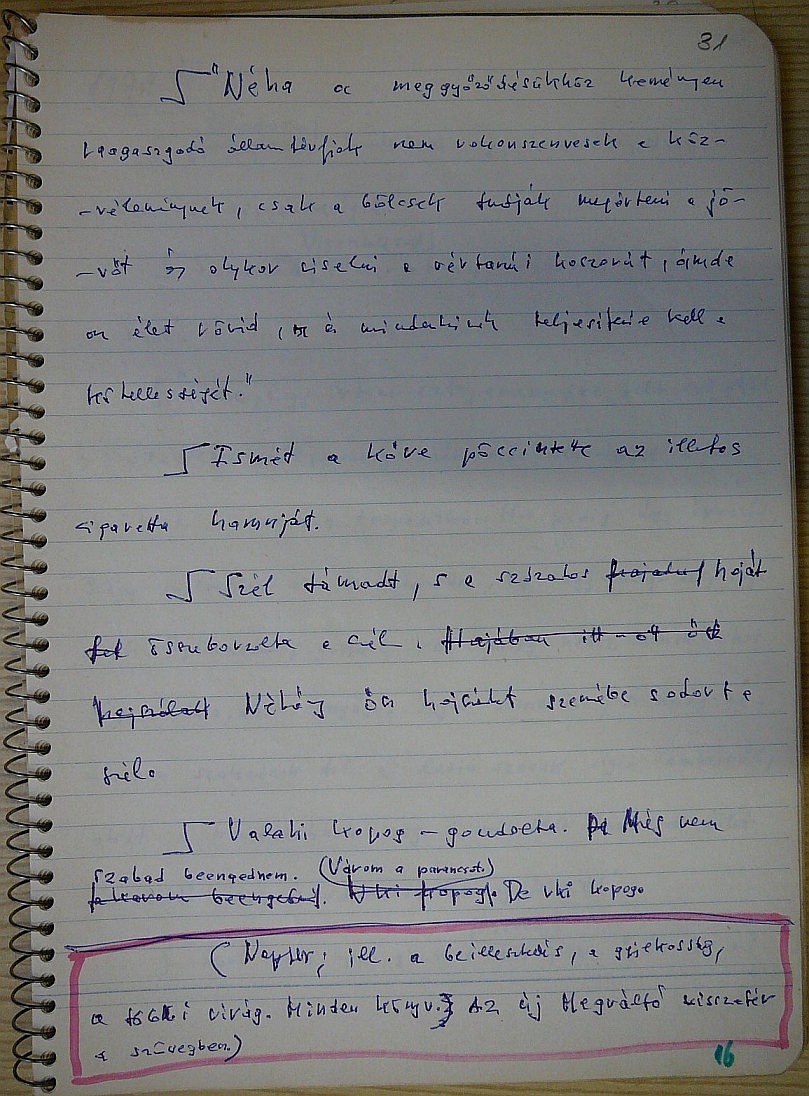 31
"Néha a meggyőződésükhöz keményen
ragaszkodó államférfiak nem rokonszenvesek a köz-
-véleménynek, csak a bölcsek tudják megérteni a jö-
-vőt és olykor viselni a vértanúi koszorút, ámde
az élet rövid, és mindenkinek teljesítenie kell a
kötelességét."
Ismét a kőre pöccintette az illatos
cigaretta hamuját.
Szél támadt, s a szálas haját
össze borzolta a szél.
Néhány ősz hajszálat szemébe sodort a
szél.
Valaki kopog – gondolta. Még nem
szabad beengednem. (Várom a parancsot.)
De vki kopog.
ill. a beilleszkedés, a gyilkosság,
virág. Minden könyv. Az új Megváltó visszatér
a szövegben.)
16